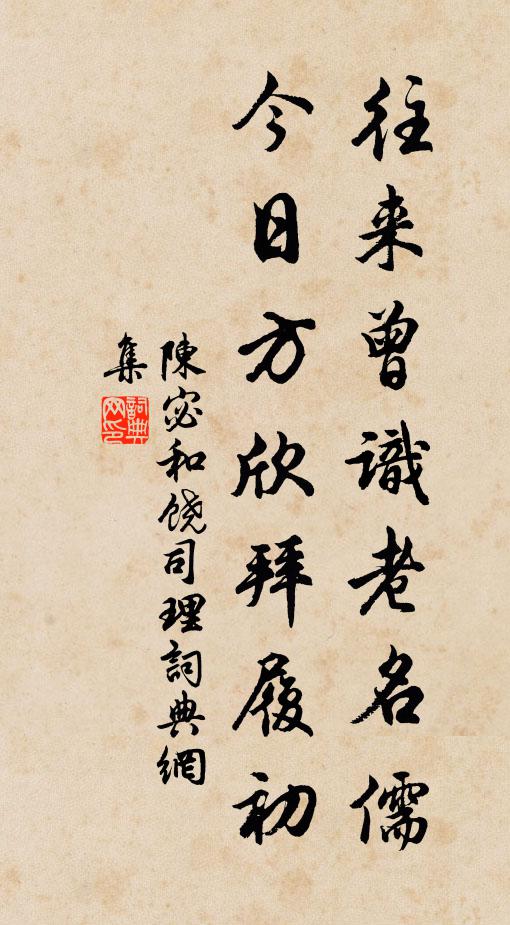 往来曾識老名儒
今日方欣拜履初
陳宓和饒司理詞典網
集
詞典网印